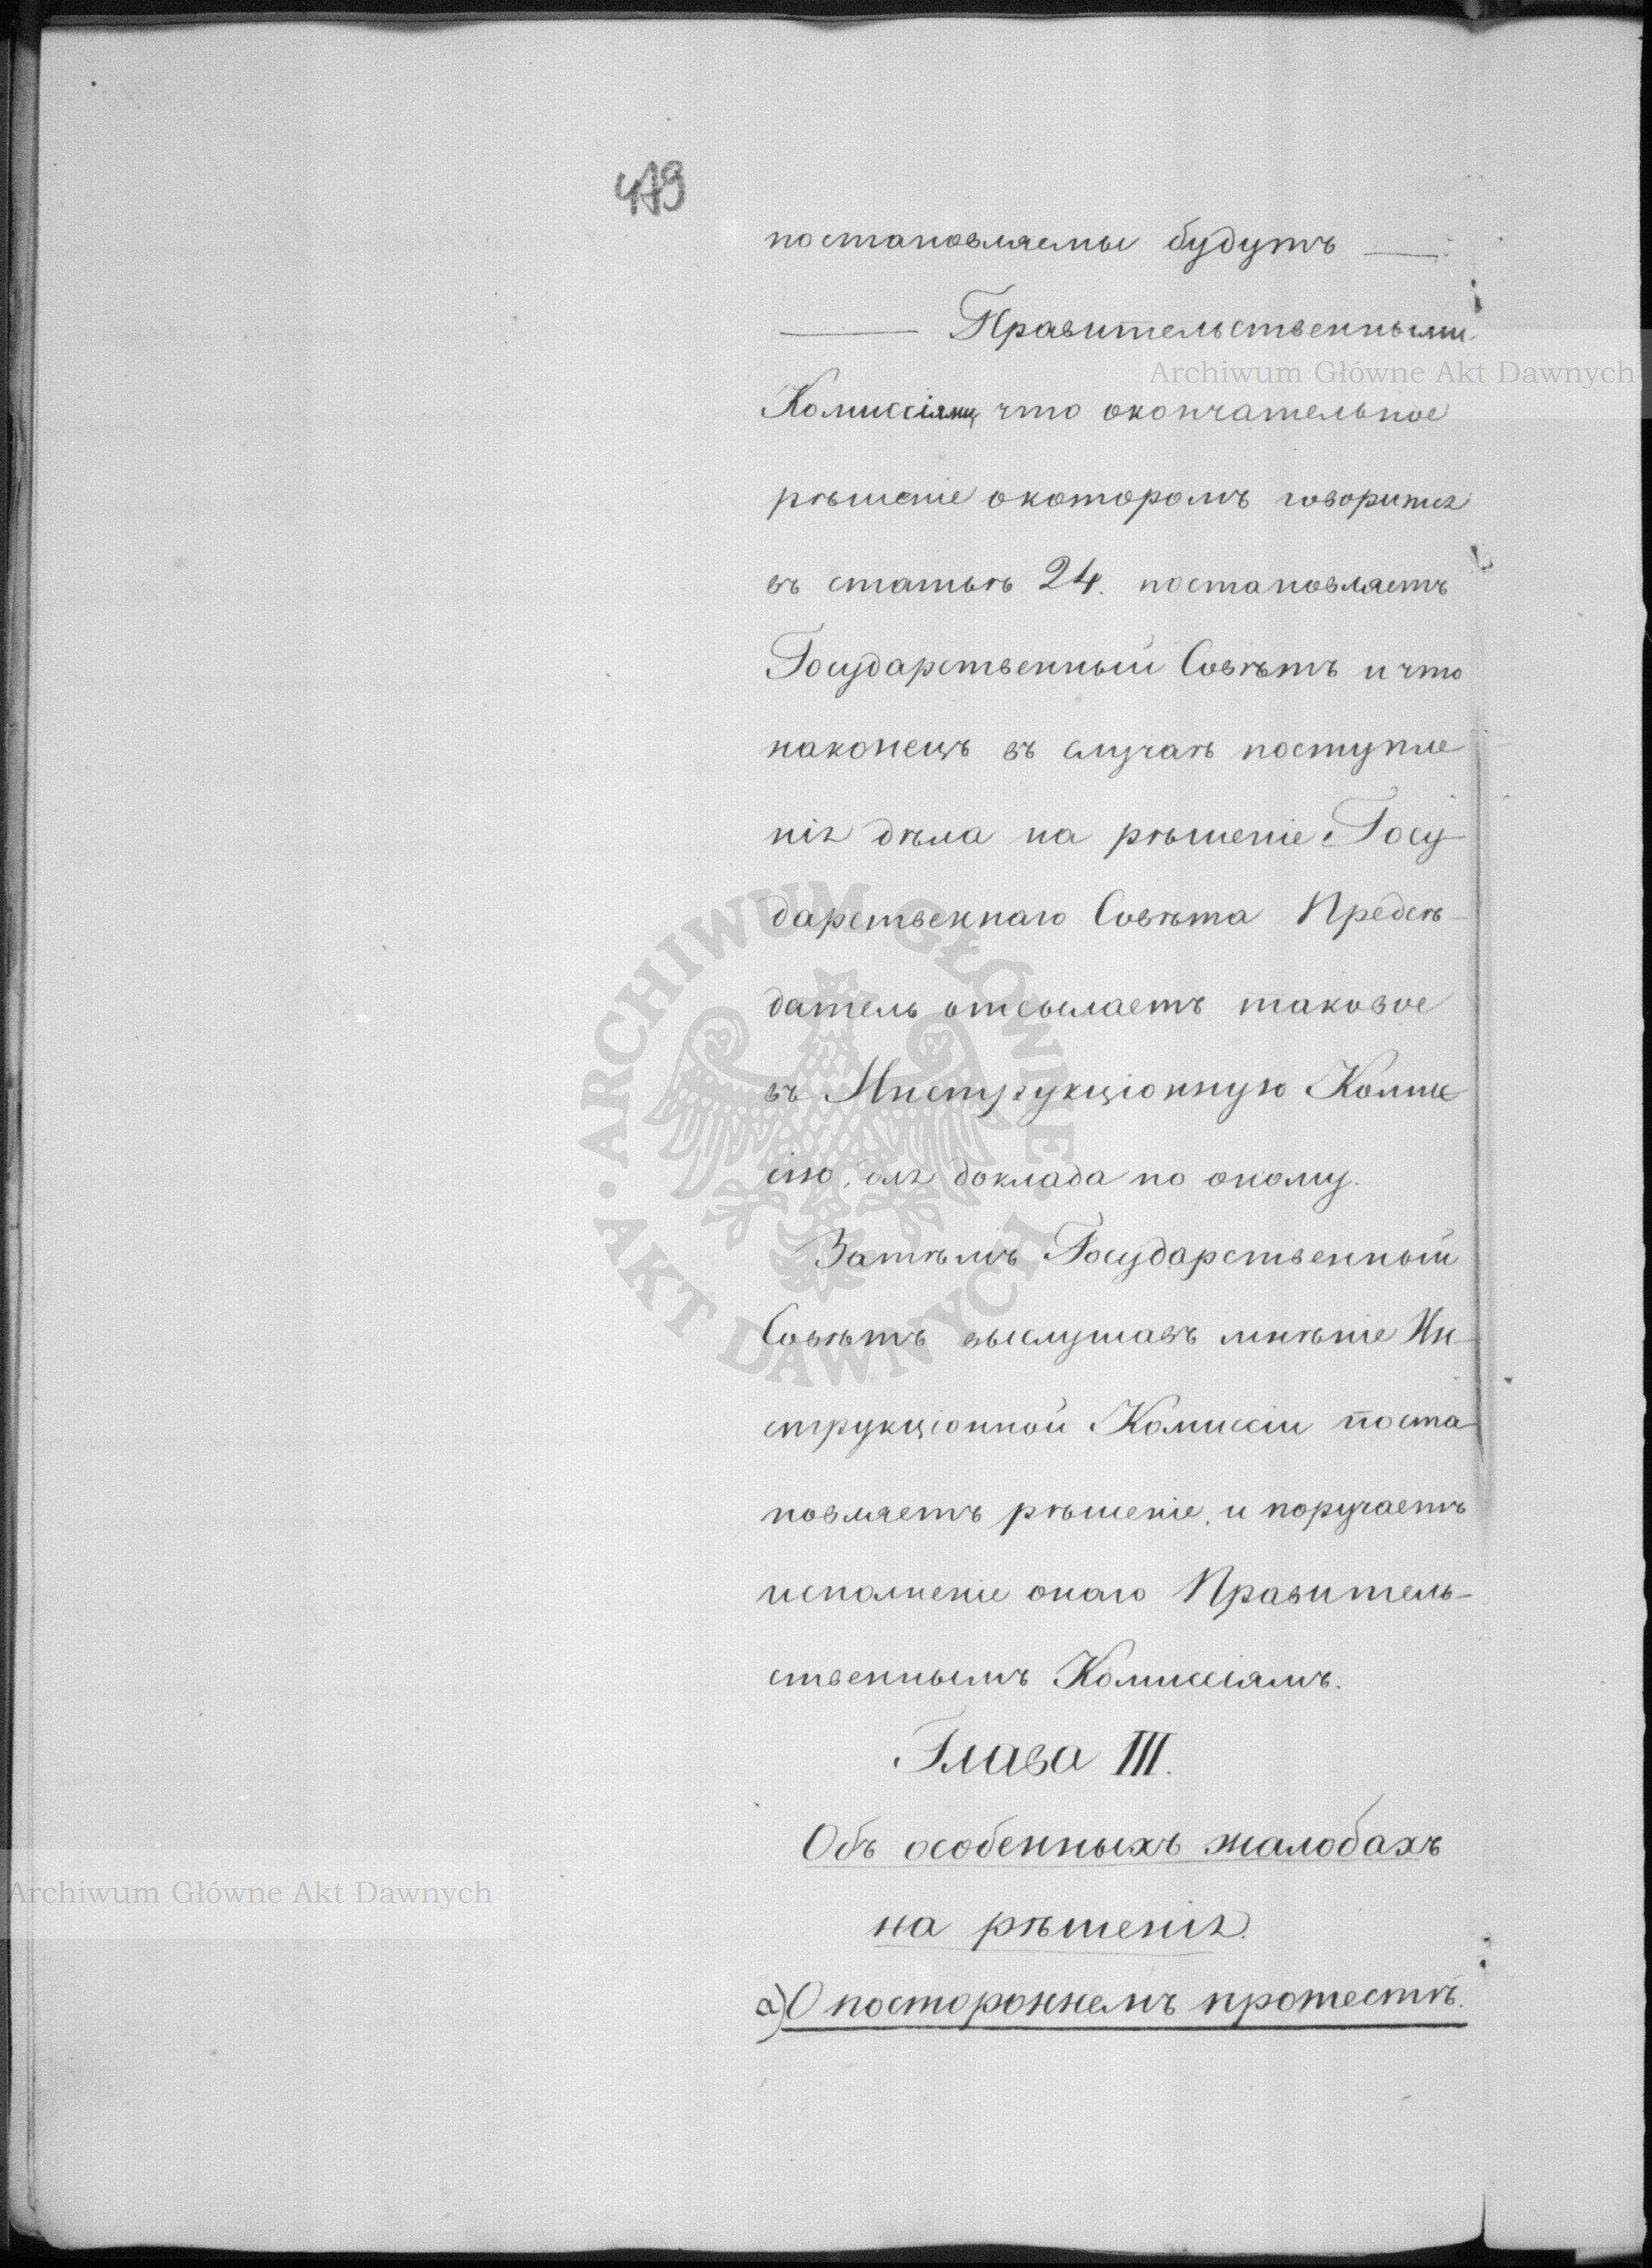 479
постановляемы будутъ ——
—— Правительственными
Комиссіями, что окончательное
рѣшеніе о которомъ говорится
въ статьѣ 24. постановляетъ
Государственный Совѣтъ и что
наконецъ въ случаѣ поступле
нія дѣла на рѣшеніе Госу-
дарственнаго Совѣта Предсѣ-
датель отсылаетъ таковое
въ Инструкціонную Комис
сію, для доклада по оному.
Затѣмъ Государственный
Совѣтъ выслушавъ мнѣніе Ин-
струкціонной Комиссіи поста-
новляетъ рѣшеніе, и поручаетъ
исполненіе онаго Правитель-
ственнымъ Комиссіямъ.
Глава III.
Объ особенныхъ жалобахъ
на рѣшенія.
а) О постороннемъ протестѣ.
Archiwum Główne Akt Dawnych
ARCHIWUM GŁÓWNE · AKT DAWNYCH ·
Archiwum Główne Akt Dawnych